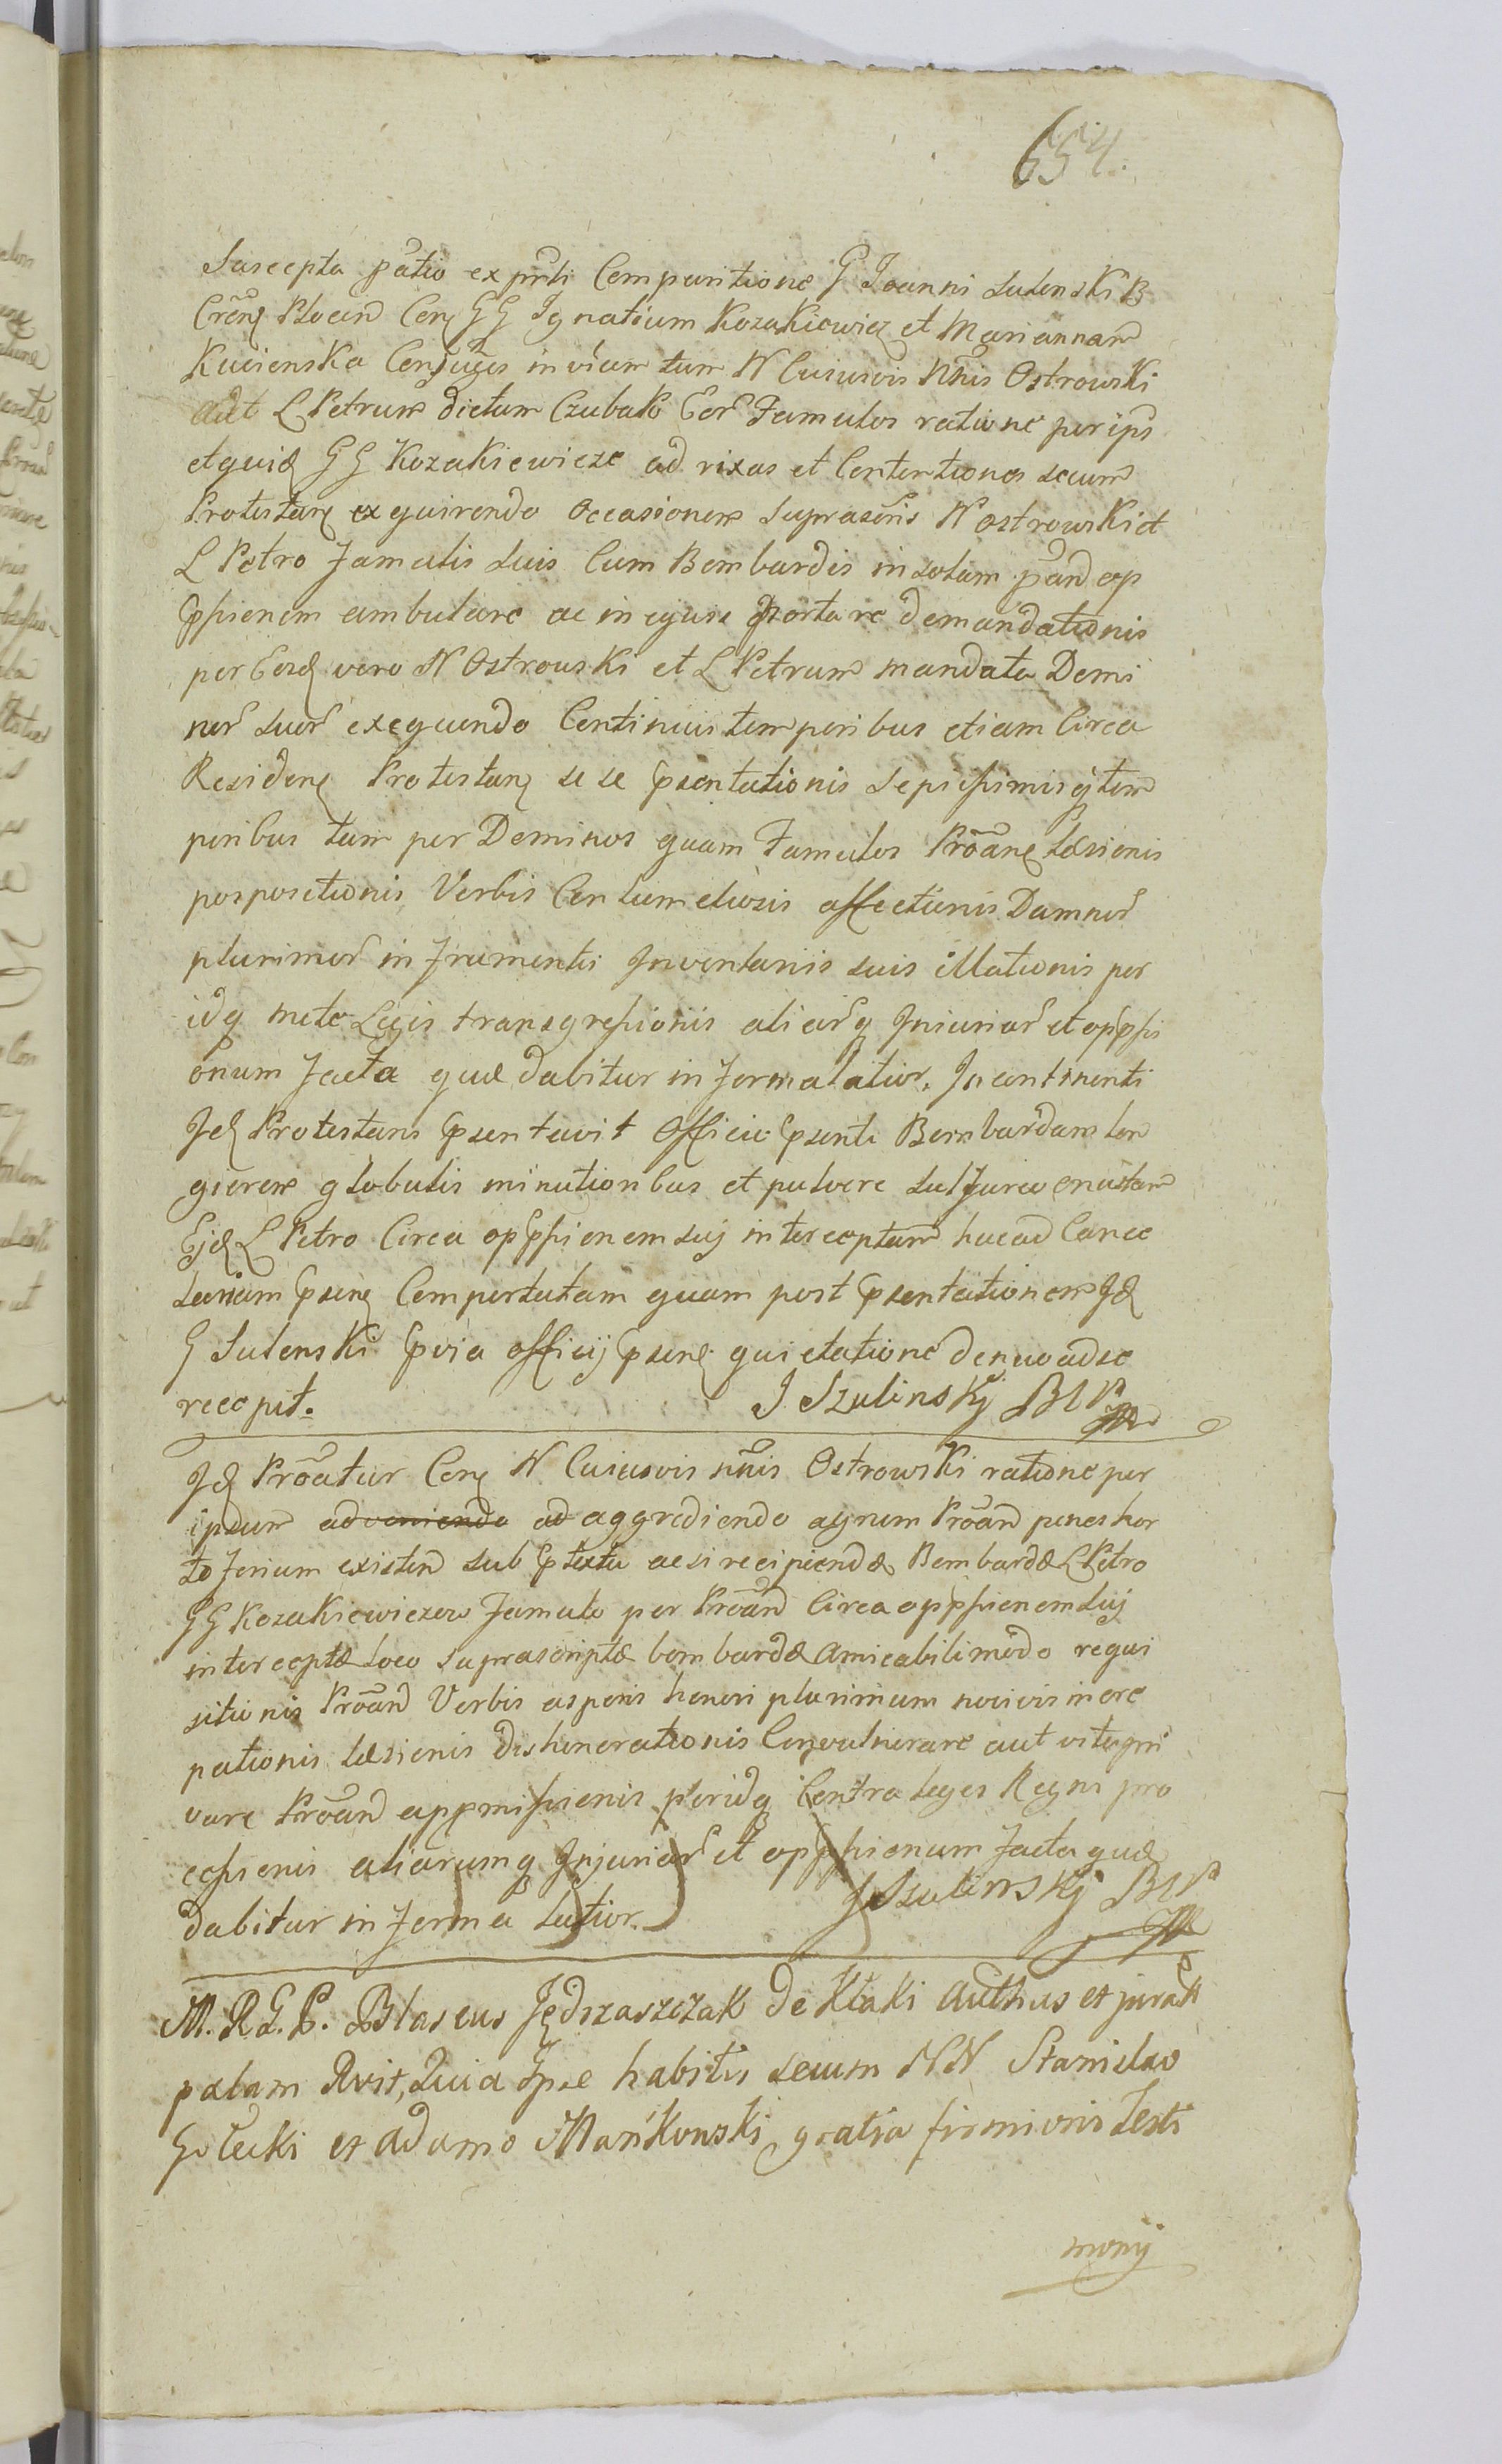 654.
Suscepta pãtio ex prñti Comparitione G Joanni Sulenski B
Crẽnẽ Ploceñ Conẽ GG Ignatium Kozakiewicz et Mariannam
Kucienska Conjuges invicem tum N Cuiusvis Nñis Ostrowski
aut L Petrum dictum Czubak Eor Famulos ratione per ips
et quidẽ GG Kozakiewicze ad rixas et Contentiones secum
Protestanẽ exquirendo Occasionem Suprascriis N Ostrowski et
L Petro Famulis Suis Cum Bombardis in solam pãnd op
pssionem ambulare ac in eguu portare demandationis
per Eosdẽ vero N Ostrowski et L Petrum mandata Domi
nor Suor exequendo Continuis temporibus etiam Circa
Residenẽ Protestanẽ se se psentationis Sepissimisq tem
poribus tam per Dominos quam Famulos Prõanẽ læsionis
pospositionis Verbis Contumeliosis affectionis Damnor
plurimor in Frumentis Inventariis suis illationis per
idq meta Legis transgressionis aliarq Iniuriar et oppssi
onum facta quæ dabitur in forma latior. In continenti
Idẽ Protestans psentavit Officio psenti Bombardam lon
giorem globulis minutioribus et pulvere Sulfureo onustam
Ejdẽ L Petro Circa oppssionem sui interceptam hac ad Cance
lariam psenẽ Comportatam quam post psentationem Idẽ
G Sulenski pvia officij psenẽ quietatione denuo ad se
recepit. J Szulinskj BCP
Idẽ Prõatur Conẽ N Cuiusvis nñis Ostrowski ratione per
ipsum adveniendo ad aggrediendo agrum Prõand penes hor
to ferium existen sub ptextu ac si recipiendæ Bombardæ L Petro
GG Kozakiewiczow Famulo per Prõand Circa oppssionem Sui
interceptæ loco Suprascriptæ bombardæ Amicabili modo requi
sitionis Prõand Verbis asperis honori plurimum nocivis incre
pationis læsionis dishonorationis Convulnerare aut vita pri
vare Prõand appromissionis peridq Contra leges Regni pro
cessionis aliarumq Injuriar et oppssionum facta quæ
dabitur in forma latior. J Szulinskj BCP
M. R. G. P. Blasius Jędrzaszczak de Kłaki Authus et jurãtt
palam Rvit, Quia Ipse habitis secum NN Stanislao
Gołecki et Adamo Mańkowski gratia firmioris Testi
monij